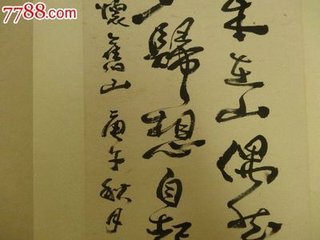 7788.com
山偶然
歸想自起
懷舊山 庚午秋月